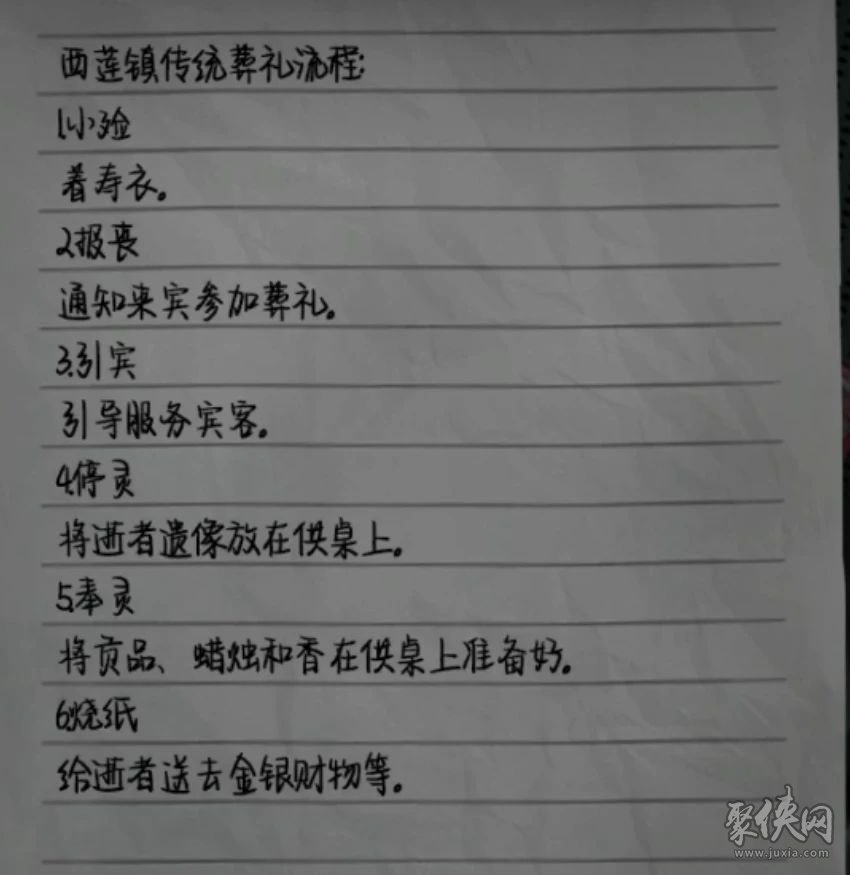 西莲镇传统葬礼流程:
1.小殓
着寿衣。
2.报丧
通知来宾参加葬礼。
3.引宾
引导服务宾客。
4.停灵
将逝者遗像放在供桌上。
5.奉灵
将贡品、蜡烛和香在供桌上准备好。
6.烧纸
给逝者送去金银财物等。
聚侠网
www.juxia.com